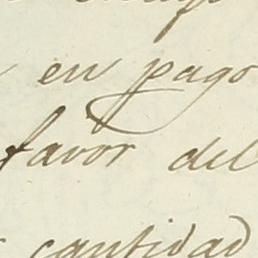 en pago
favor del
cantidad